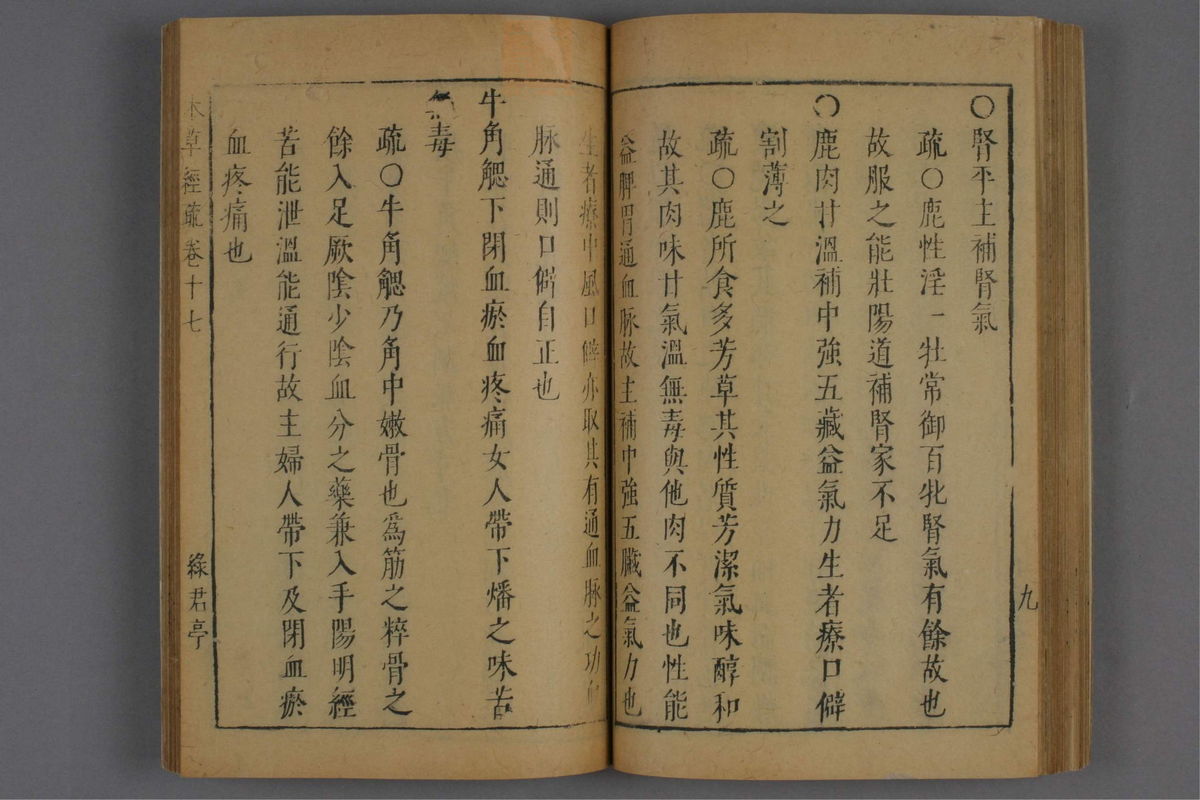 〇腎平主補腎氣
疏〇鹿性淫一牡常御百牝腎氣有餘故也
故服之能壯陽道補腎家不足
〇鹿肉甘溫補中強五藏益氣力生者療口僻
割薄之
疏〇鹿所食多芳草其性質芳潔氣味醇和
故其肉味甘氣溫無毒與他肉不同也性能
益脾胃通血脉故主補中強五臟益氣力也
生者療中風口僻亦取其有通血脉之功血
脉通則口僻自正也
牛角䚡下閉血瘀血疼痛女人帶下燔之味苦
無毒
疏〇牛角䚡乃角中嫩骨也爲筋之粹骨之
餘入足厥陰少陰血分之藥兼入手陽明經
苦能泄溫能通行故主婦人帶下及閉血瘀
血疼痛也
九
本草經疏卷十七
綠君亭